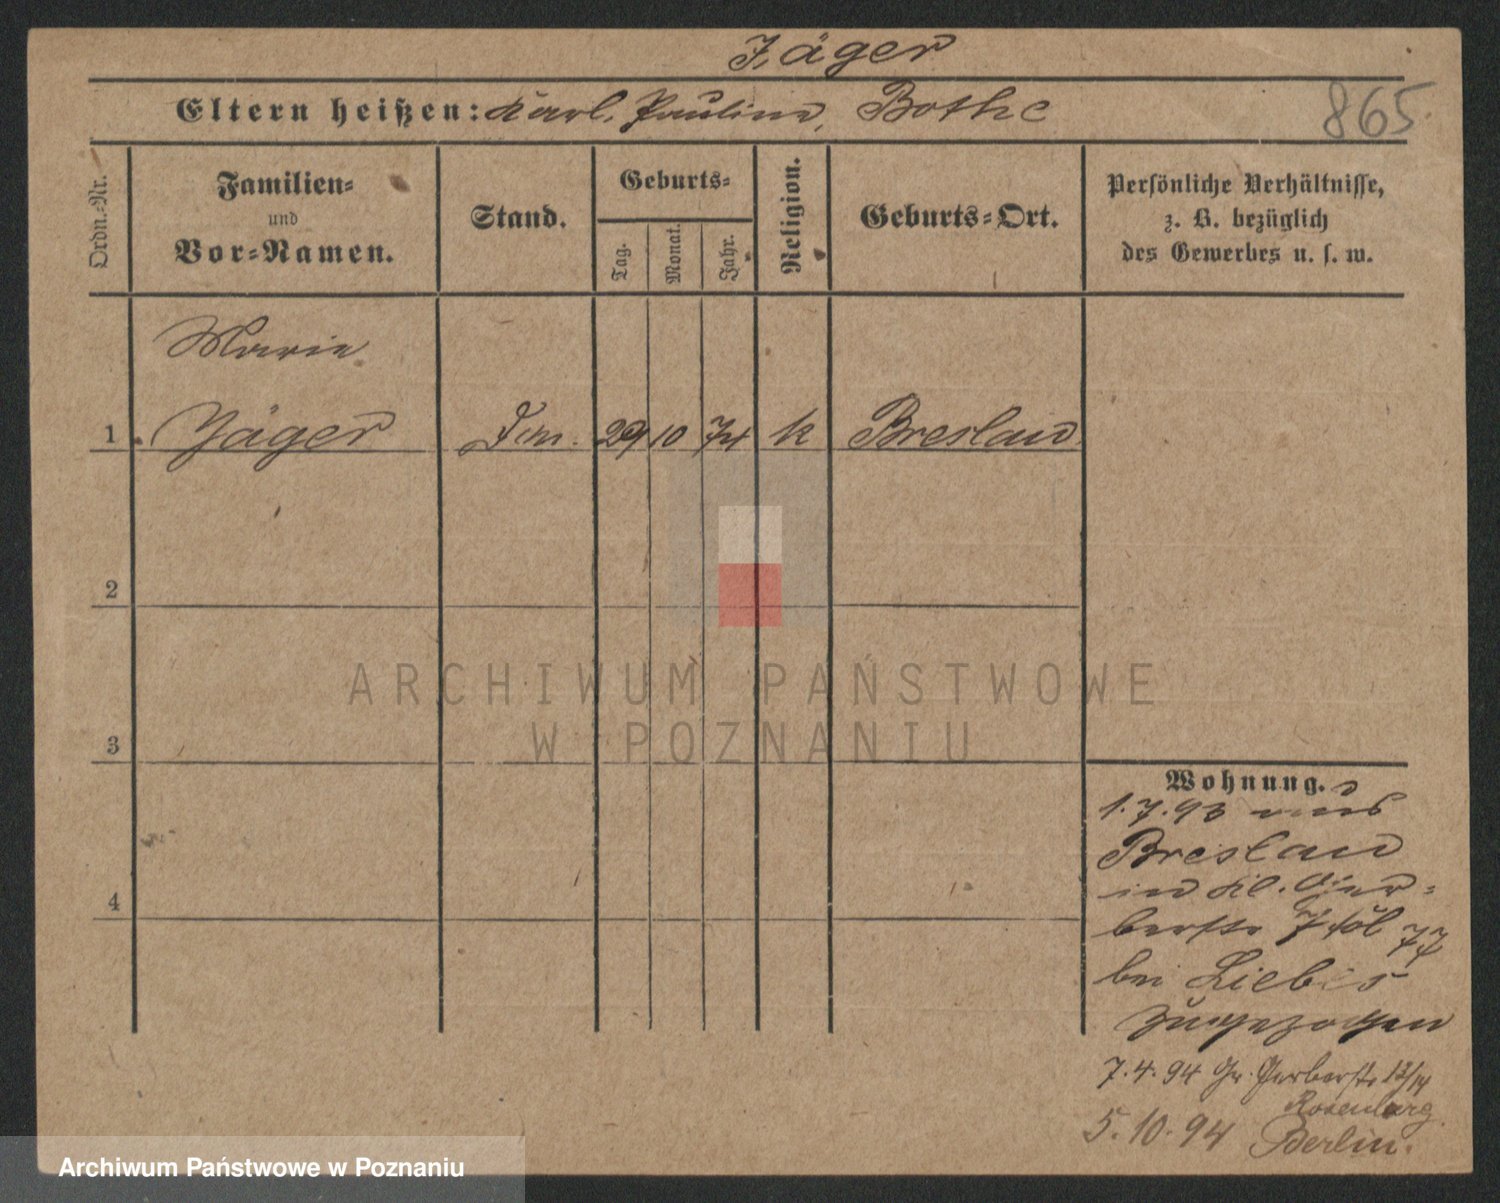 Jäger
Eltern heißen: Karl, Pauline, Bothe
865
Ordn.-Nr.
Familien-
und
Vor-Namen.
Stand.
Geburts-
Tag.
Monat.
Jahr.
Religion.
Geburts-Ort.
Persönliche Verhältnisse,
z. B. bezüglich
des Gewerbes u. s. w.
Marie
1 Jäger 29 10 74 k Breslau
2
3
4
Wohnung.
1.7.93 aus
Breslau
in Kl. Ger-
berstr 7
bei Liebis
zugezogen
7.4.94 Gr. Gerberstr 13/14
Rosenberg
5.10.94 Berlin.
ARCHIWUM PAŃSTWOWE
W POZNANIU
Archiwum Państwowe w Poznaniu